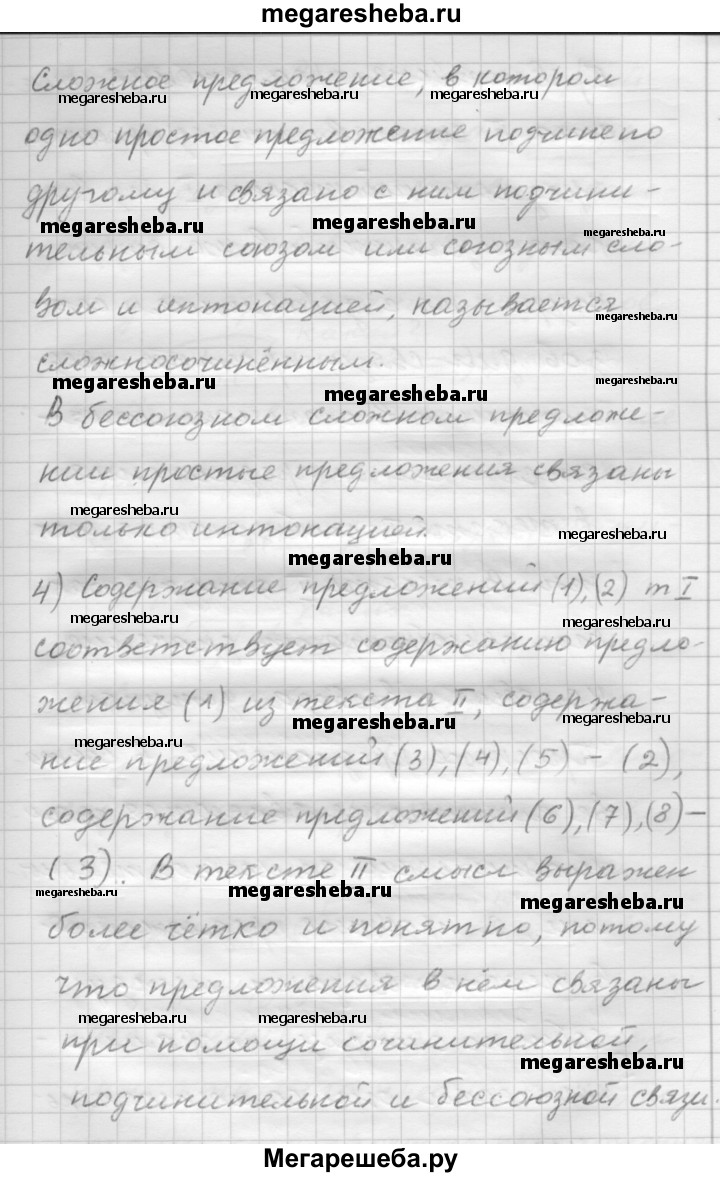 megaresheba.ru
Сложное предложение, в котором
megaresheba.ru megaresheba.ru megaresheba.ru
одно простое предложение подчинено
другому и связано с ним подчини-
megaresheba.ru megaresheba.ru megaresheba.ru
тельным союзом или союзным сло-
вом и интонацией, называется
megaresheba.ru
сложносочинённым.
megaresheba.ru megaresheba.ru megaresheba.ru
В бессоюзном сложном предложе-
нии простые предложения связаны
megaresheba.ru
только интонацией.
megaresheba.ru
megaresheba.ru
4) Содержание предложений (1), (2) т I
megaresheba.ru megaresheba.ru
соответствует содержанию предло-
жения (1) из текста II, содержа-
megaresheba.ru megaresheba.ru
megaresheba.ru
ние предложений (3), (4), (5) – (2),
содержание предложений (6), (7), (8) –
(3). В тексте II смысл выражен
megaresheba.ru megaresheba.ru megaresheba.ru
более чётко и понятно, потому
что предложения в нём связаны
megaresheba.ru megaresheba.ru
при помощи сочинительной,
megaresheba.ru
подчинительной и бессоюзной связи.
Мегарешеба.ру